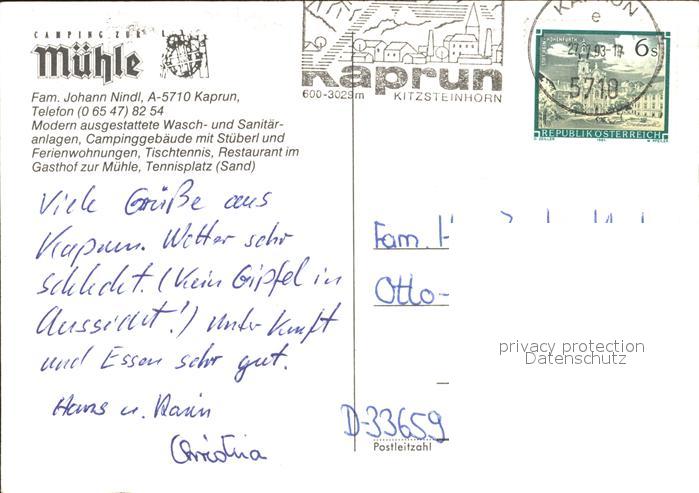 CAMPING ZUR
Mühle
Fam. Johann Nindl, A-5710 Kaprun,
Telefon (0 65 47) 82 54
Modern ausgestattete Wasch- und Sanitär-
anlagen, Campinggebäude mit Stüberl und
Ferienwohnungen, Tischtennis, Restaurant im
Gasthof zur Mühle, Tennisplatz (Sand)
Kaprun
600-3029m KITZSTEINHORN
KAPRUN
e
5710
6s
REPUBLIK ÖSTERREICH
Viele Grüße aus
Kaprun. Wetter sehr
schlecht. (Kein Gipfel in
Aussicht!) Unterkunft
und Essen sehr gut.
Hans u. Karin
Christina
Fam. H
Otto-
D-33659
Postleitzahl
privacy protection
Datenschutz